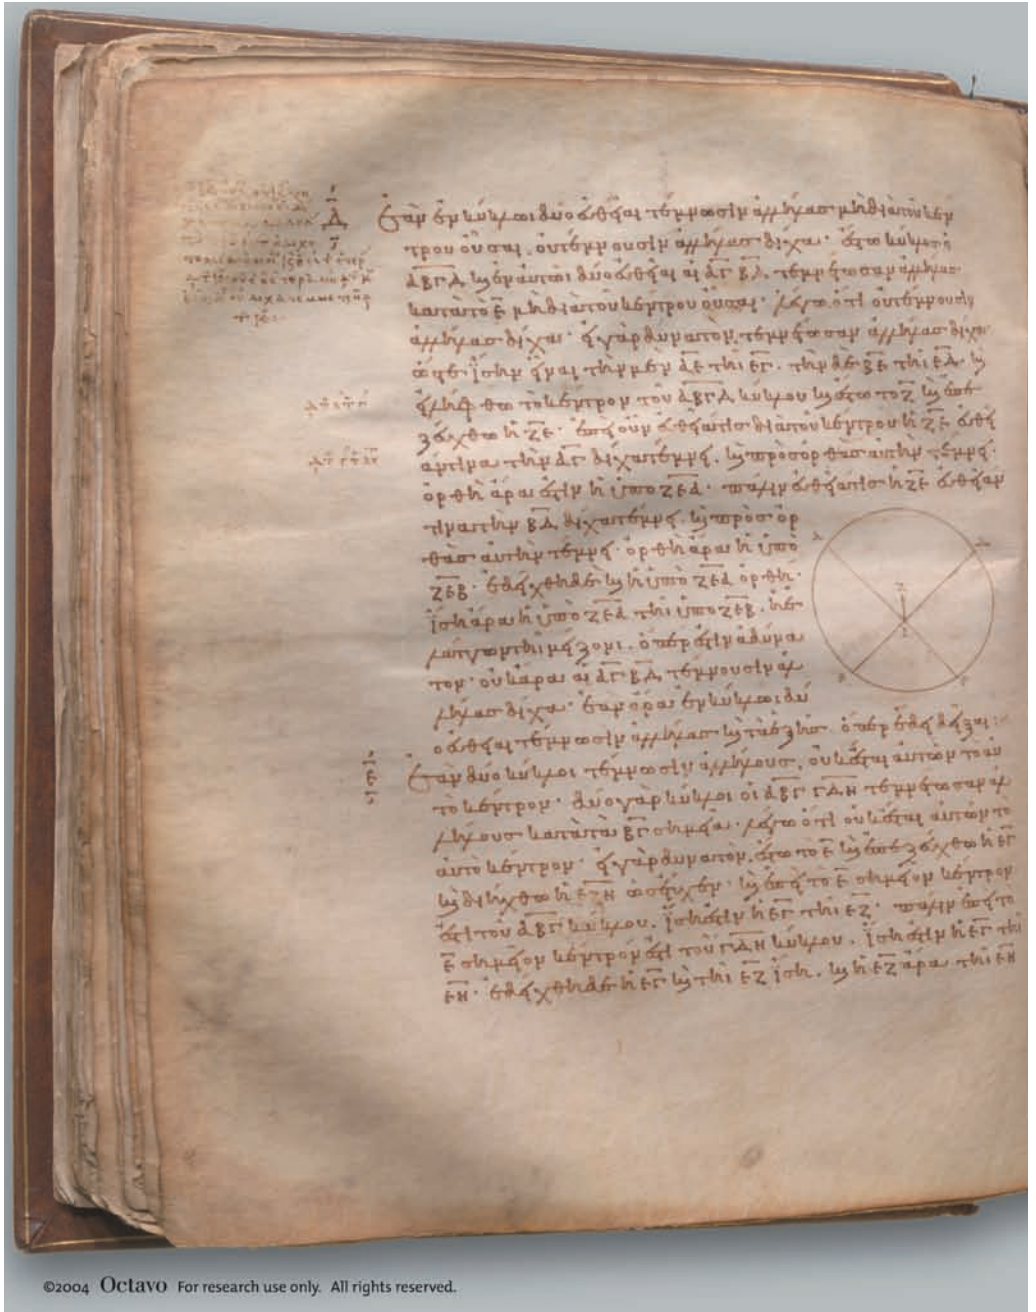 Δ Ἐὰν ἐν κύκλωι δύο εὐθεῖαι τέμνωσιν ἀλλήλας μὴ διὰ τοῦ κέν
τρου οὖσαι, οὐ τέμνουσιν ἀλλήλας δίχα· ἔστω κύκλος ὁ
ΑΒΓΔ καὶ ἐν αὐτῶι δύο εὐθεῖαι αἱ ΑΓ ΒΔ τεμνέτωσαν ἀλλήλας
κατὰ τὸ Ε μὴ διὰ τοῦ κέντρου οὖσαι· λέγω ὅτι οὐ τέμνουσιν
ἀλλήλας δίχα· εἰ γὰρ δυνατὸν, τεμνέτωσαν ἀλλήλας δίχα
ὥστε ἴσην εἶναι τὴν μὲν ΑΕ τῆι ΕΓ. τὴν δὲ ΒΕ τῆι ΕΔ. καὶ
εἰλήφθω τὸ κέντρον τοῦ ΑΒΓΔ κύκλου καὶ ἔστω τὸ Ζ καὶ ἐπε
ζεύχθω ἡ ΖΕ· ἐπεὶ οὖν εὐθεῖά τις διὰ τοῦ κέντρου ἡ ΖΕ εὐθεῖ
άν τινα τὴν ΑΓ δίχα τέμνει, καὶ πρὸς ὀρθὰς αὐτὴν τέμνει·
ὀρθὴ ἄρα ἐστὶν ἡ ὑπὸ ΖΕΑ· πάλιν εὐθεῖά τις ἡ ΖΕ εὐθεῖαν
τινα τὴν ΒΔ δίχα τέμνει, καὶ πρὸς ὀρ
θὰς αὐτὴν τέμνει· ὀρθὴ ἄρα ἡ ὑπὸ
ΖΕΒ· ἐδείχθη δὲ καὶ ἡ ὑπὸ ΖΕΑ ὀρθή·
ἴση ἄρα ἡ ὑπὸ ΖΕΑ τῆι ὑπὸ ΖΕΒ. ἡ ἐ
λάττων τῆι μείζονι. ὅπερ ἐστὶν ἀδύνα
τον· οὐκ ἄρα αἱ ΑΓ ΒΔ τέμνουσιν ἀλ
λήλας δίχα· ἐὰν ἄρα ἐν κύκλωι δύ
ο εὐθεῖαι τέμνωσιν ἀλλήλας καὶ τὰ ἑξῆς. ὅπερ ἔδει δεῖξαι:
Ε Ἐὰν δύο κύκλοι τέμνωσιν ἀλλήλους, οὐκ ἔσται αὐτῶν τὸ αὐ
τὸ κέντρον· δύο γὰρ κύκλοι οἱ ΑΒΓ ΓΔΗ τεμνέτωσαν ἀλ
λήλους κατὰ τὰ ΒΓ σημεῖα· λέγω ὅτι οὐκ ἔσται αὐτῶν τὸ
αὐτὸ κέντρον· εἰ γὰρ δυνατὸν, ἔστω τὸ Ε καὶ ἐπεζεύχθω ἡ ΕΓ
καὶ διήχθω ἡ ΕΖΗ ὡς ἔτυχεν· καὶ ἐπεὶ τὸ Ε σημεῖον κέντρον
ἐστὶ τοῦ ΑΒΓ κύκλου, ἴση ἐστὶν ἡ ΕΓ τῆι ΕΖ· πάλιν ἐπεὶ τὸ
Ε σημεῖον κέντρον ἐστὶ τοῦ ΓΔΗ κύκλου, ἴση ἐστὶν ἡ ΕΓ τῆι
ΕΗ· ἐδείχθη δὲ ἡ ΕΓ καὶ τῆι ΕΖ ἴση. καὶ ἡ ΕΖ ἄρα τῆι ΕΗ
©2004 Octavo For research use only. All rights reserved.